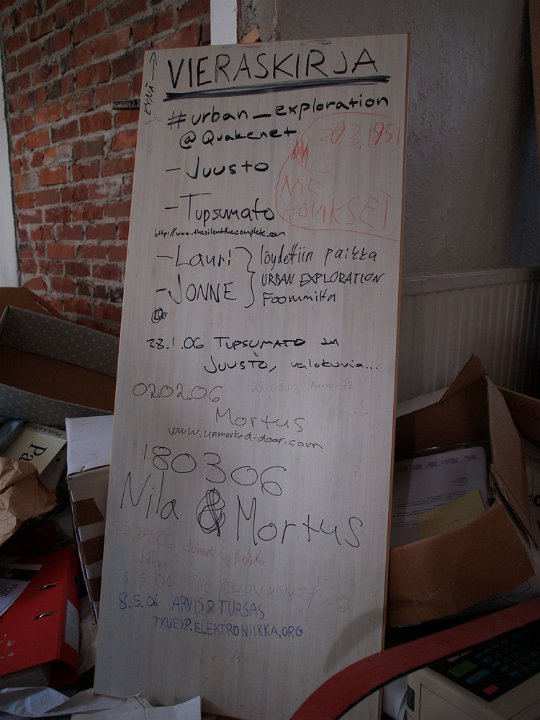 VIERASKIRJA
#urban_exploration
@Quakenet
29.3.1951
ME
- Juusto
- Tupsumato
http://www.thesilenthecomplete.com
- Lauri } löydettiin paikka
- JONNE } URBAN EXPLORATION
Foorumilta
28.1.06 TUPSUMATO JA
JUUSTO, valokuvia...
02.02.06
Mortus
www.unmarked-door.com
180306
Nila & Mortus
8.5.06 ARVIS & TURSAS
TKUEXP.ELEKTRONIIKKA.ORG